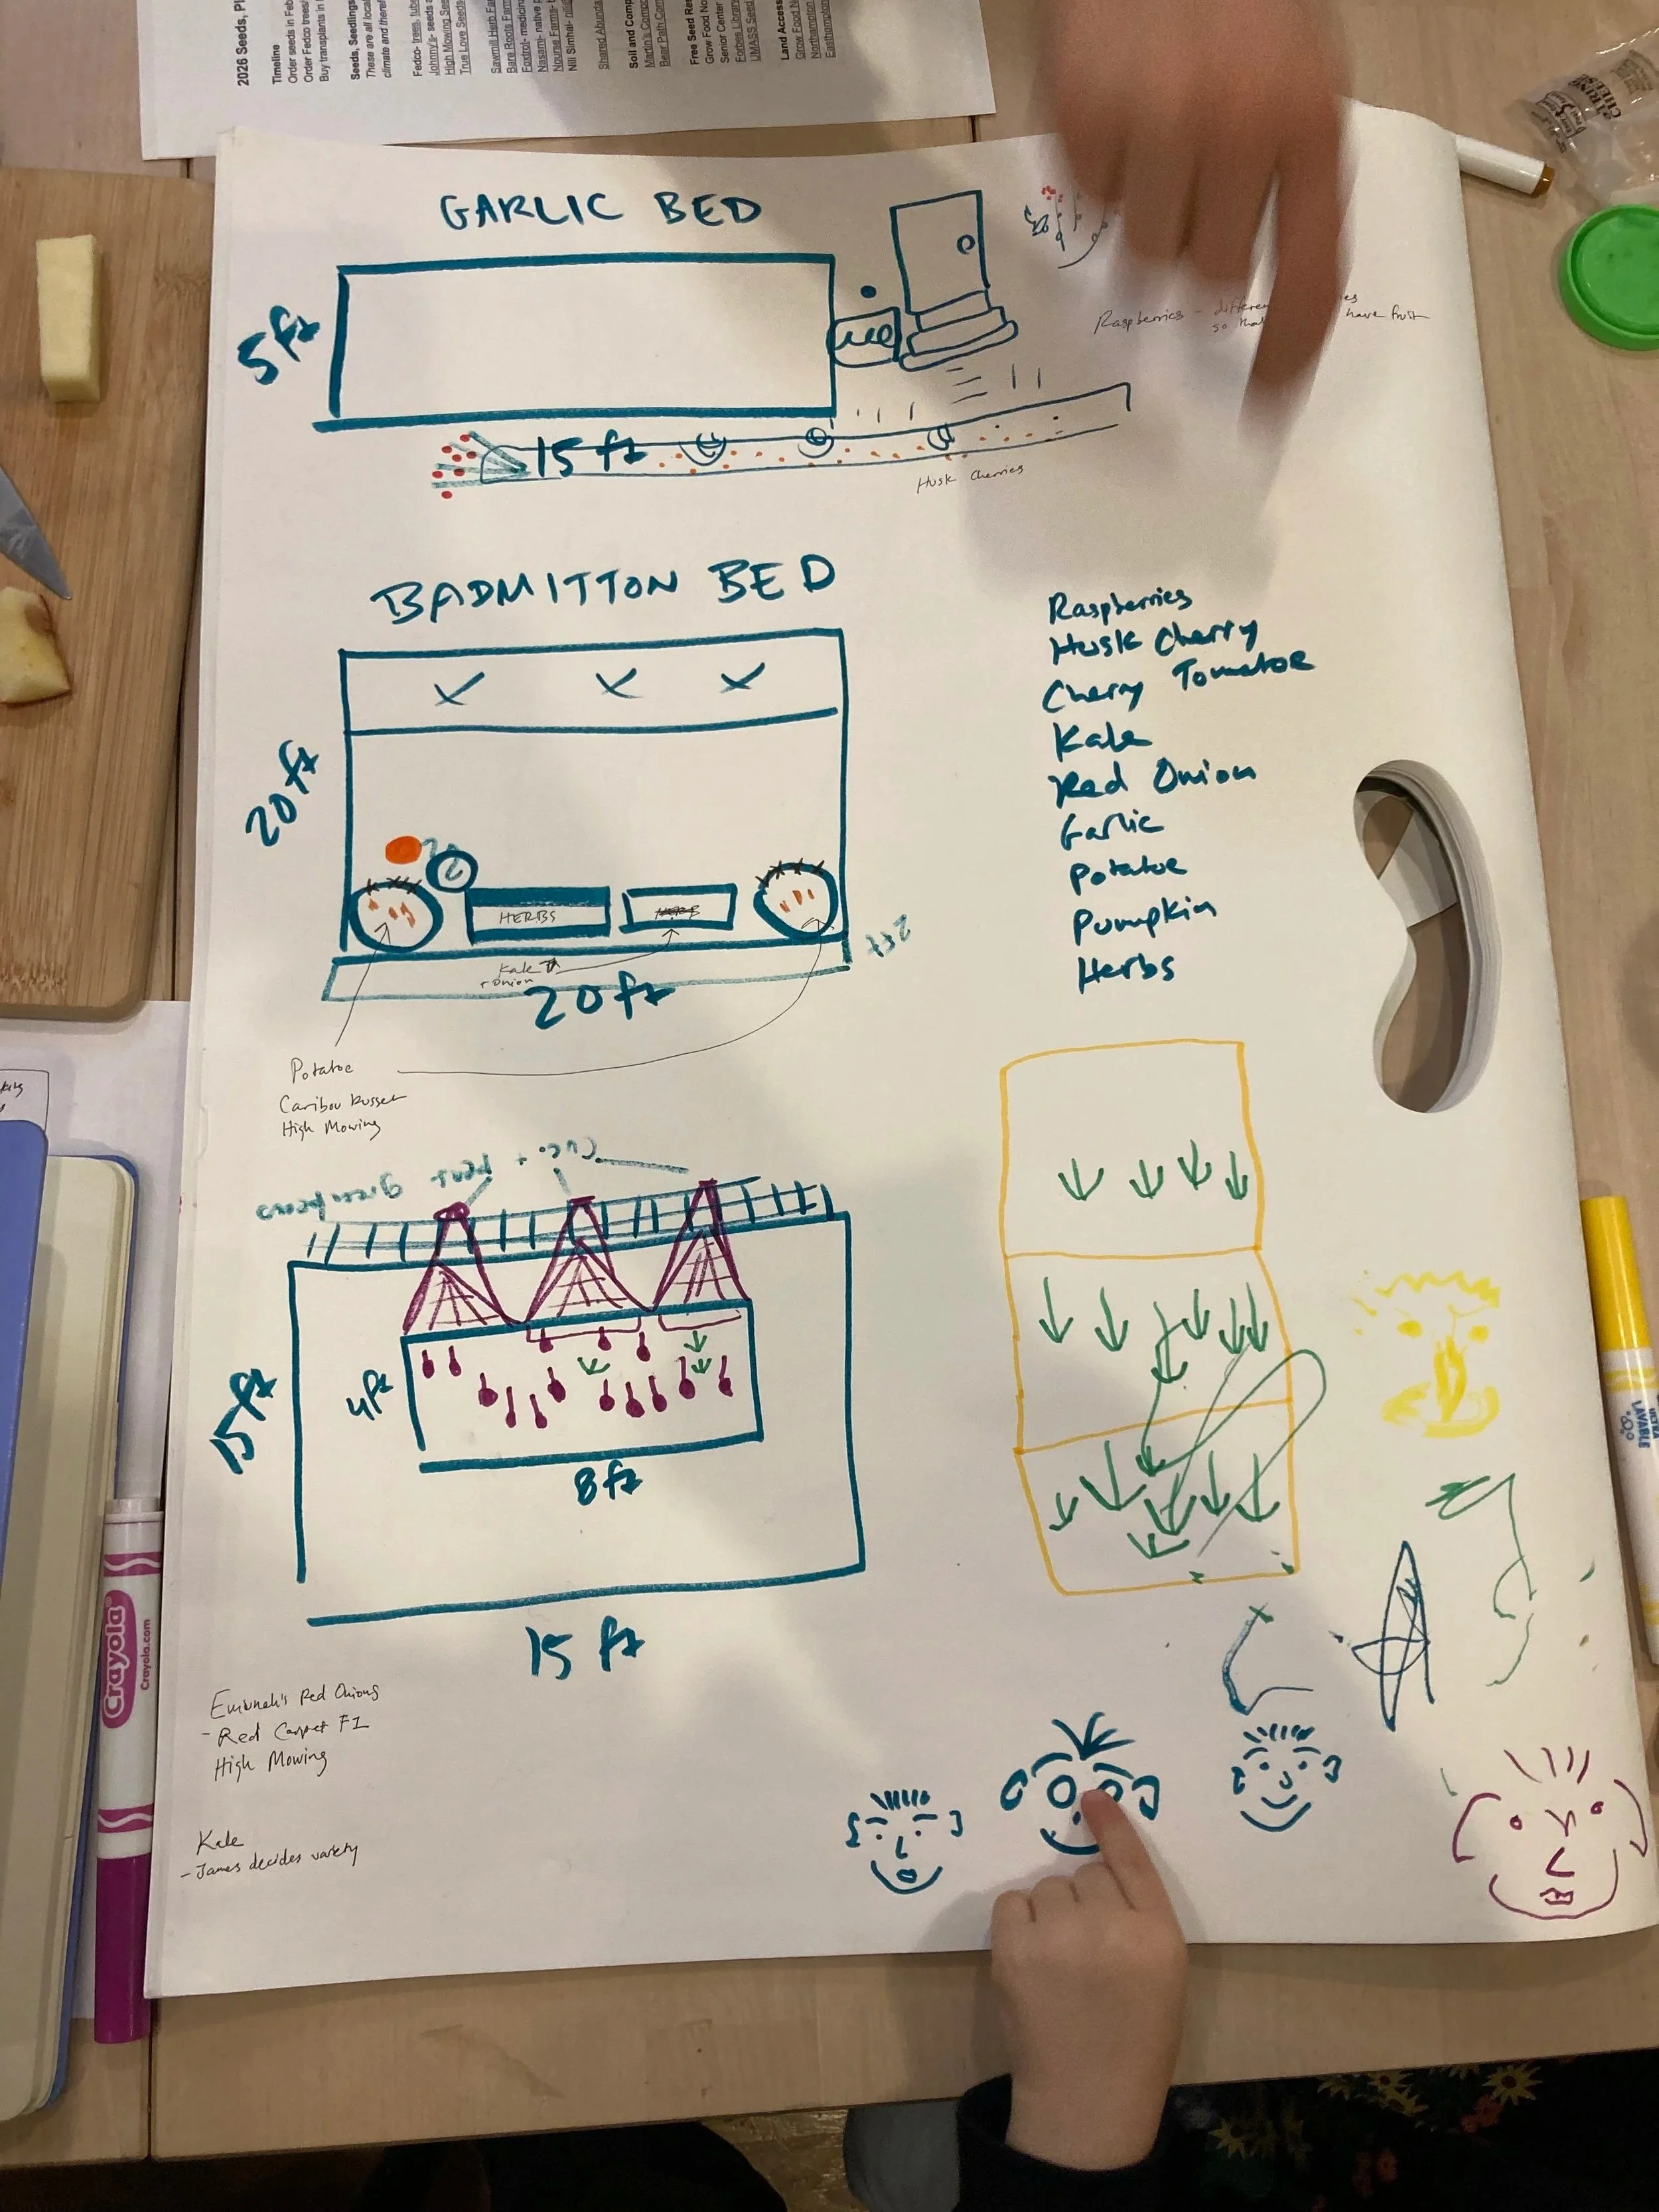 2026 Seeds, Pl
Timeline
Order seeds in Feb
Order Fedco trees/
Buy transplants in
Seeds, Seedlings
These are all local
climate and theref
Fedco- trees, tube
Johnny's- seeds a
High Mowing See
True Love Seeds
Sawmill Herb Far
Bare Roots Farm
Foxtrot- medicin
Nasami- native p
Nourse Farms- b
Nili Simhai- nilis
Shared Abunda
Soil and Comp
Martin's Compo
Bear Path Com
Free Seed Res
Grow Food No
Senior Center
Forbes Library
UMASS Seed
Land Access
Grow Food N
Northampton
Easthampton
STRING
CHEESE
GARLIC BED
5ft
15 ft
Raspberries -
so that
have fruit
Husk Cherries
BADMITTON BED
20ft
HERBS
HERB
2ft
Kale
+ Onion
20ft
Potatoe
Caribou Russet
High Mowing
Raspberries
Husk Cherry
Cherry Tomatoe
Kale
Red Onion
Garlic
Potatoe
Pumpkin
Herbs
green beans
Cuco +
15ft
4ft
8ft
15 ft
Red Onions
- Red Carpet F1
High Mowing
Kale
- James decides variety
Crayola
Crayola.com